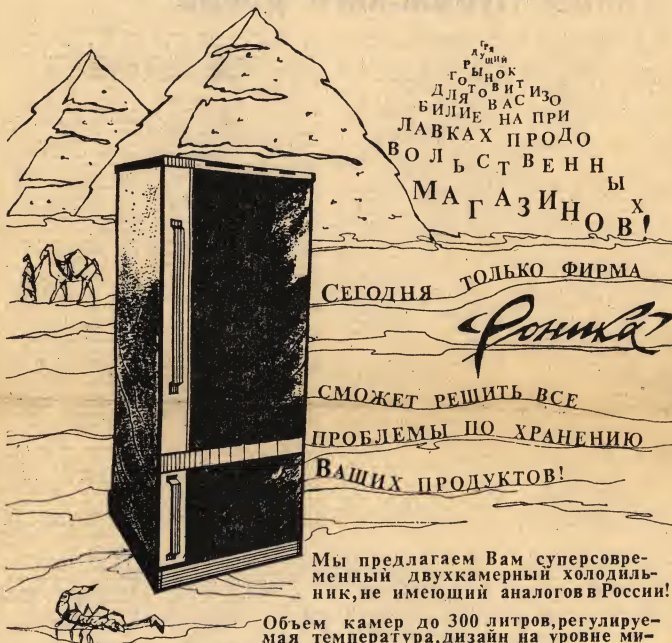 ГРЯ
ДУЩИЙ
РЫНОК
ГОТОВИТ
ДЛЯ ВАС ИЗО
БИЛИЕ НА ПРИ
ЛАВКАХ ПРОДО
ВОЛЬСТВЕННЫХ
МАГАЗИНОВ!
СЕГОДНЯ ТОЛЬКО ФИРМА
Роника
СМОЖЕТ РЕШИТЬ ВСЕ
ПРОБЛЕМЫ ПО ХРАНЕНИЮ
ВАШИХ ПРОДУКТОВ!
Мы предлагаем Вам суперсовре-
менный двухкамерный холодиль-
ник,не имеющий аналогов в России!
Объем камер до 300 литров,регулируе-
мая температура,дизайн на уровне ми-